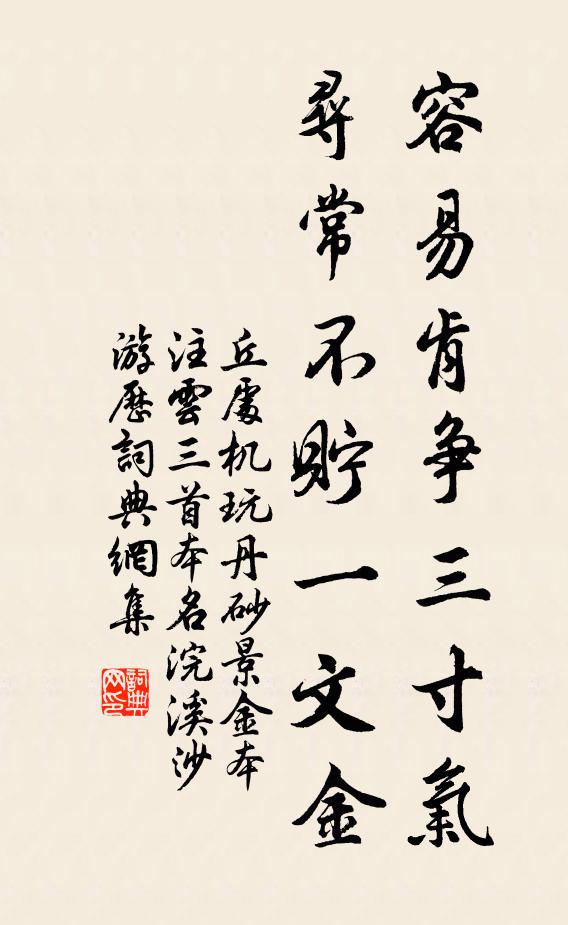 容易肯争三寸氣
尋常不貯一文金
丘處机玩丹砂景金本
注雲三首本名浣溪沙
游歷詞典網集
詞典网印